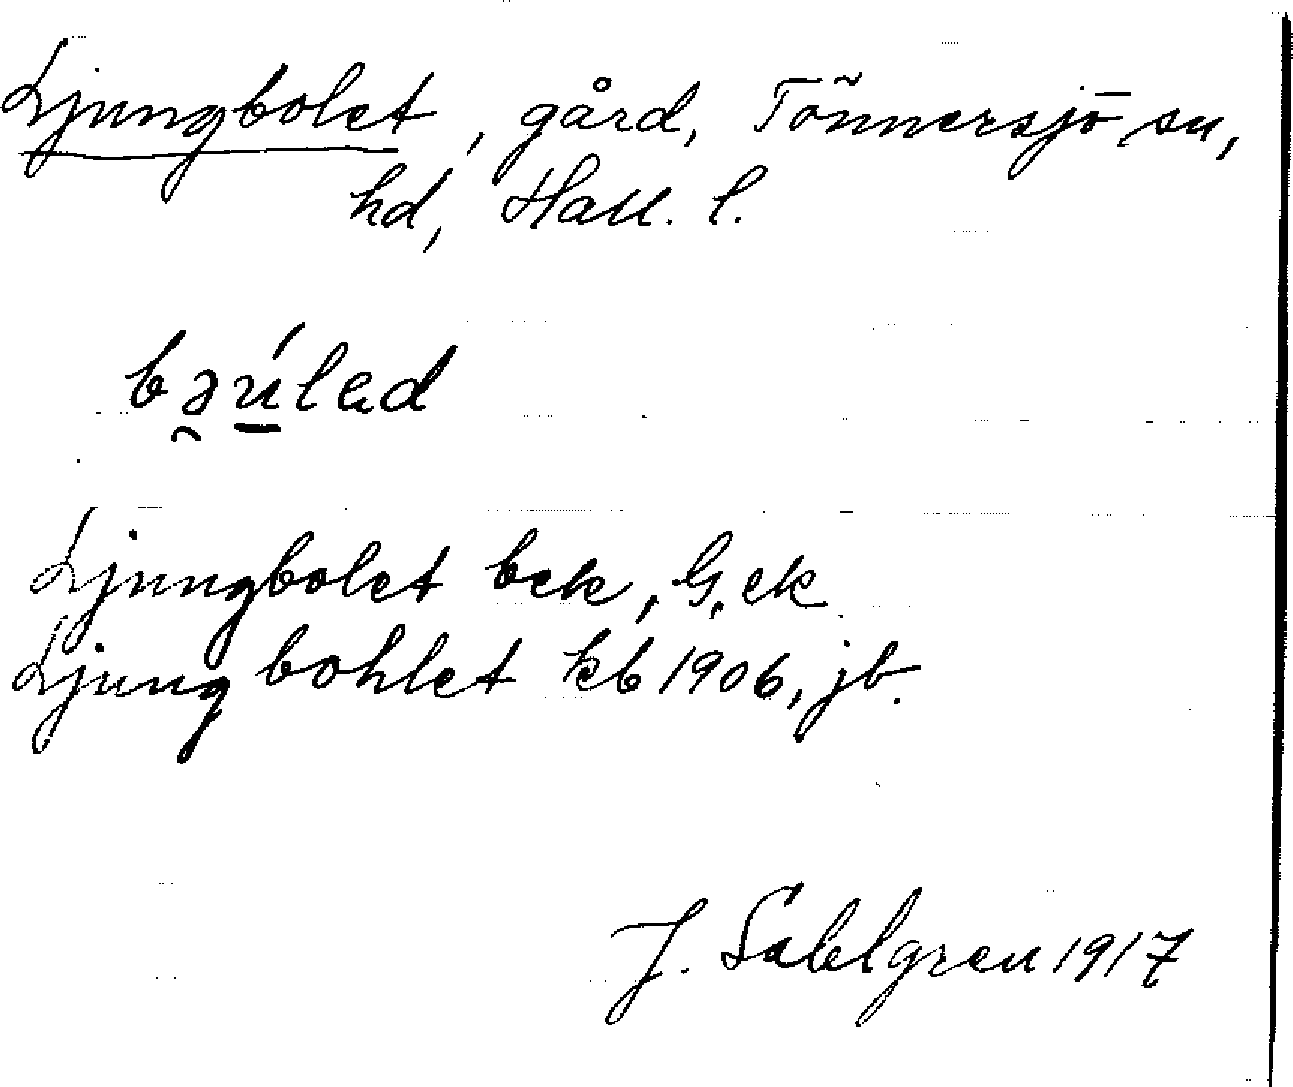 Ljungbolet, gård, Tönnersjö sn,
hd, Hall. l.
bəúlad
Ljungbolet bek, G, ek
Ljungbohlet kb 1906, jb.
J. Sahlgren 1917